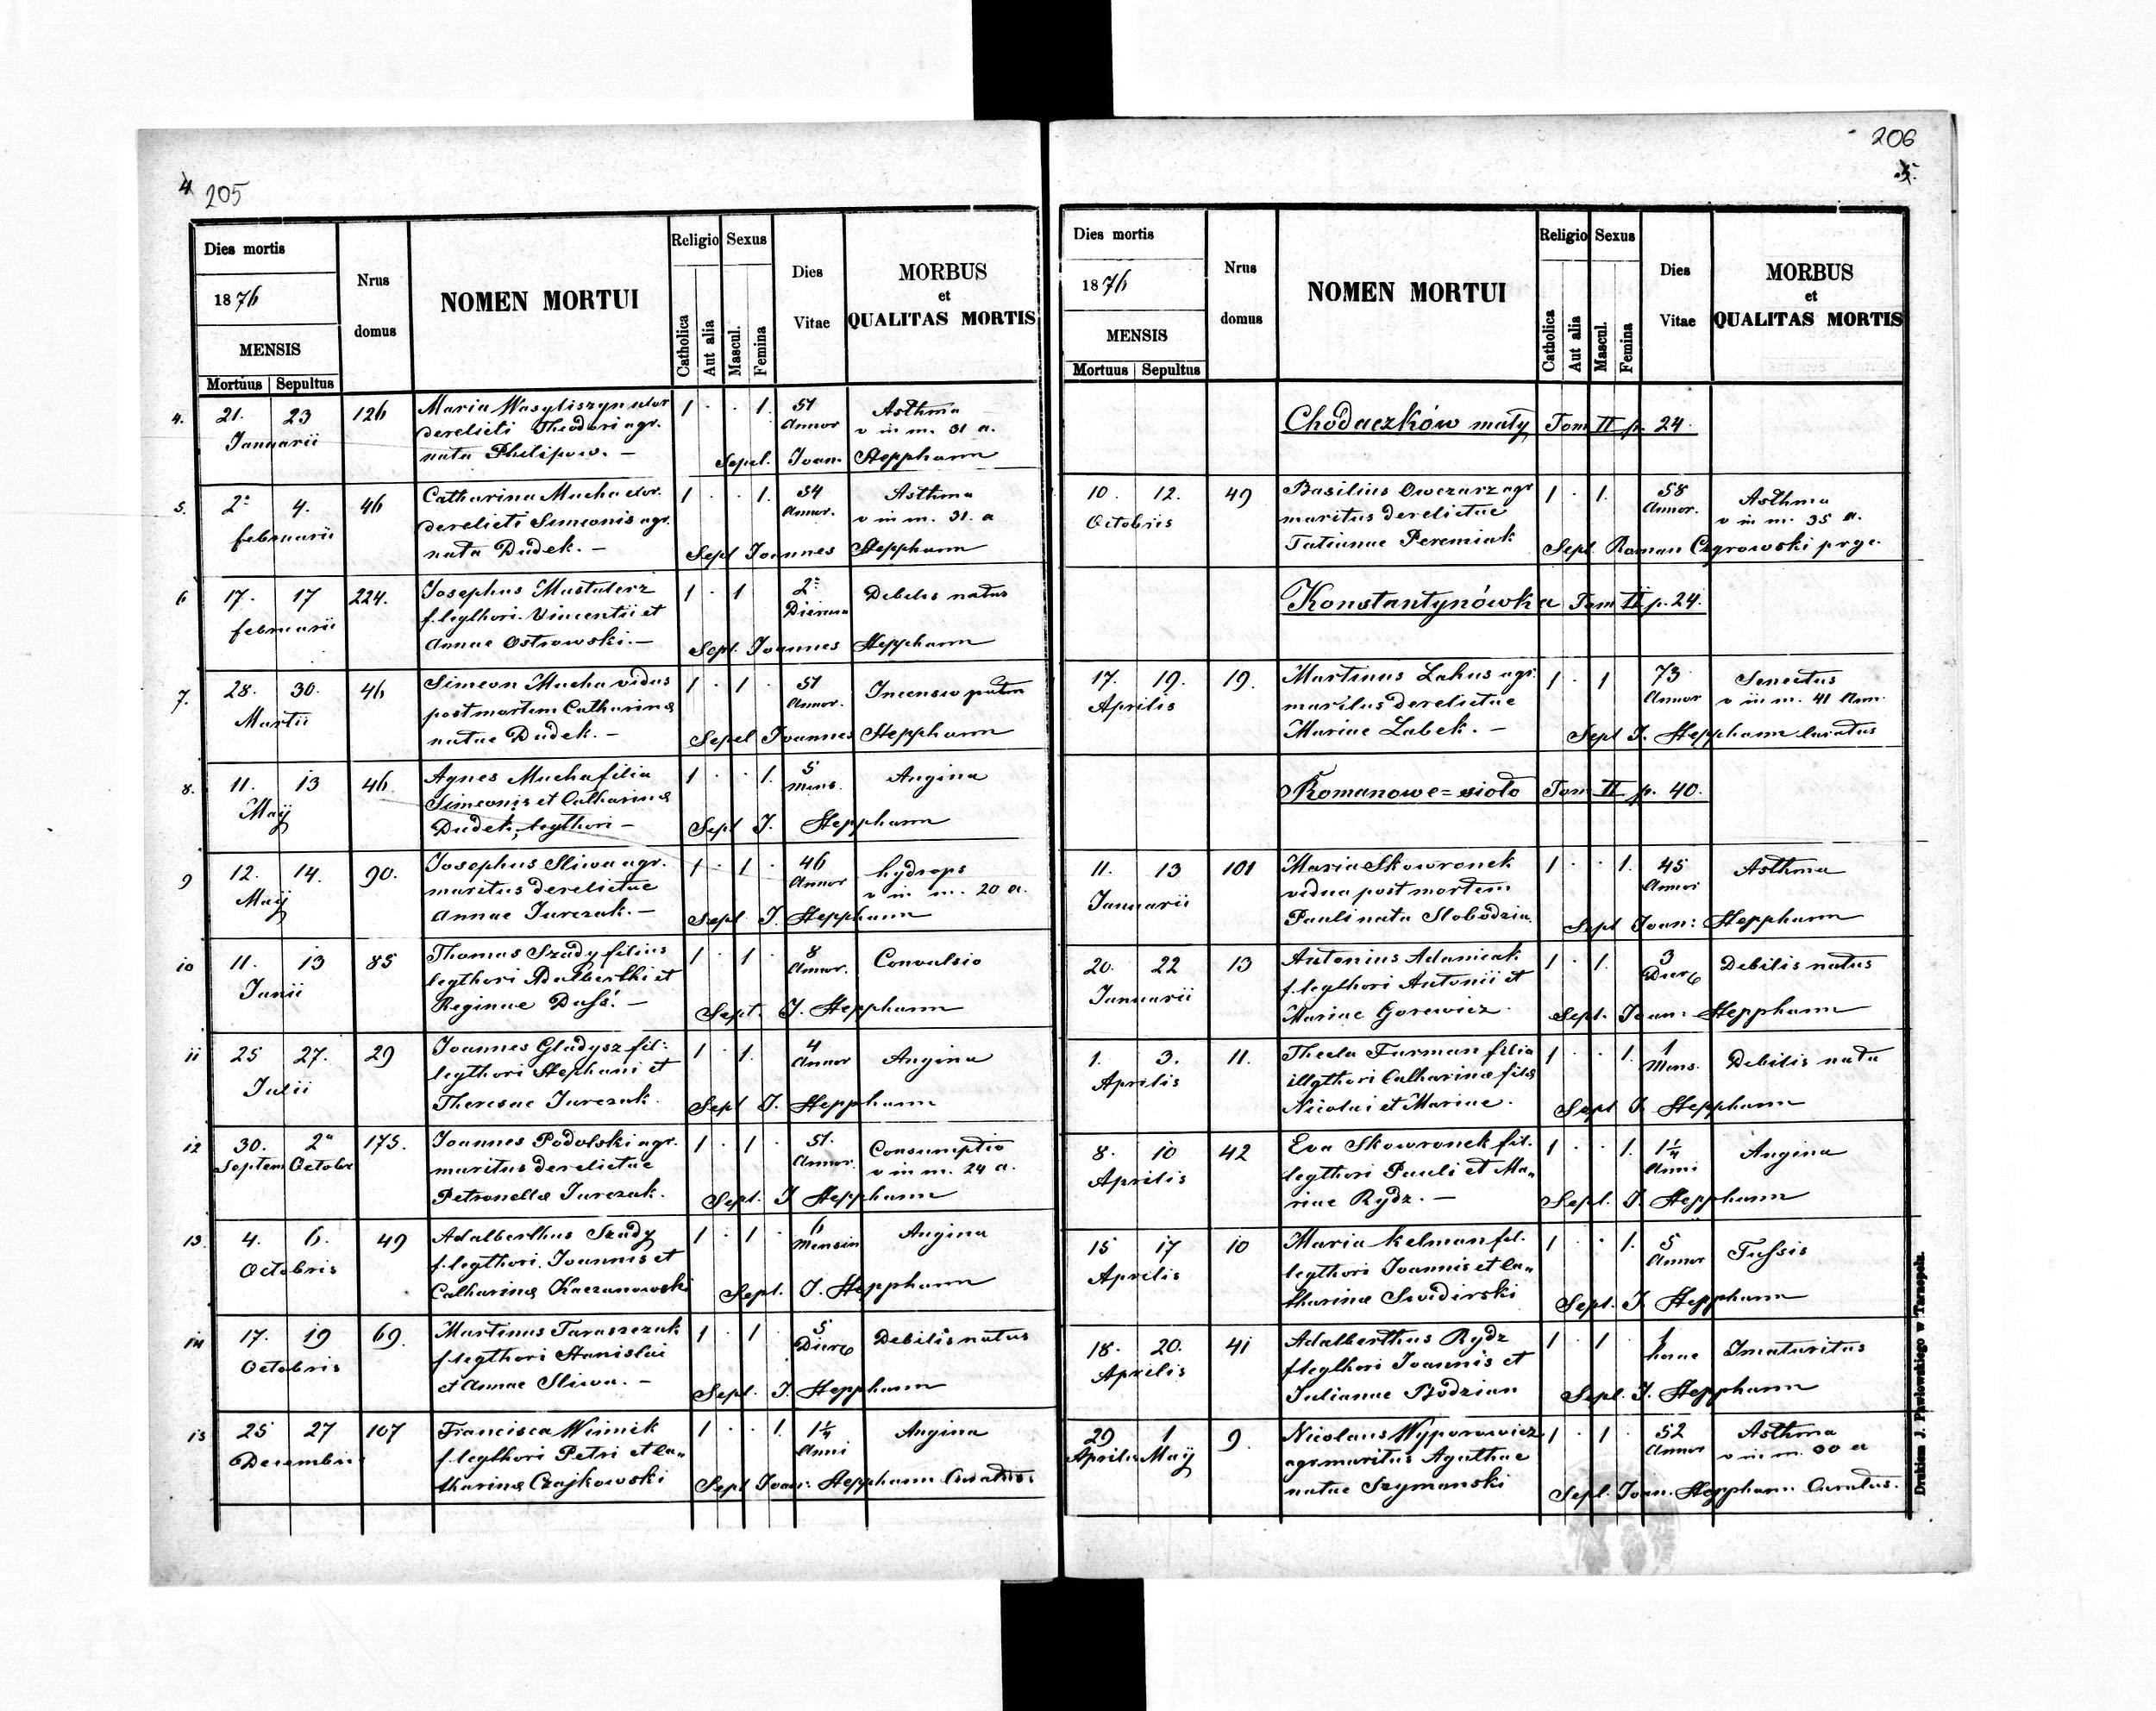 4 205
Dies mortis
1876
MENSIS
Mortuus Sepultus
Nrus
domus
NOMEN MORTUI
Religio Sexus
Catholica
Aut alia
Mascul.
Femina
Dies
Vitae
MORBUS
et
QUALITAS MORTIS
4. 21. 23 126 Maria Wasyliszyn uxor 1 . . 1. 51 Asthma
Januarii derelicti Theodori agr. Annor v in m. 31 a.
nata Philipow. — Sepel. Joan. Stepphann
5. 2a 4. 46 Catharina Mucha uxor. 1 . . 1. 54 Asthma
februarii derelicti Simeonis agr. Annor. v in m. 31. a
nata Dudek. — Sept Joannes Stepphann
6 17. 17 224. Josephus Mustuterz 1 . 1 2= Debilis natus
februarii f. legthori. Vincentii et Dierum
Annae Ostrowski. — Sept. Joannes Stepphann
7. 28. 30. 46 Simeon Mucha vidus 1 . 1 . 51
Martii post mortem Catharinæ Annor.
natae Dudek. — Sepel Joannes Stepphann
8. 11. 13 46 Agnes Mucha filia 1 . . 1. 5 Angina
Maij Simeonis et Catharinæ Mens.
Dudek, legthori — Sept J. Stepphann
9 12. 14. 90. Josephus Sliwa agr. 1 . 1 . 46 hydrops
Maij maritus derelictae Annor v in m. 20 a.
Annae Jurczak. — Sept J. Stepphann
10 11. 13 85 Thomas Szady filius 1 . 1 . 8 Convulsio
Junii legthori Adalberthi et Annor.
Reginae Duss. — Sept. J. Stepphann
11 25 27. 29 Joannes Gladysz fil: 1 . 1. 4 Angina
Julii legthori Stephani et Annor
Theresae Jurczak. Sept J. Stepphann
12 30. 2a 175. Joannes Podolski agr. 1 . 1 . 51. Consumptio
Septem Octobr maritus derelictae Annor. v in m. 24 a.
Petronellæ Jurczak. Sept. J Stepphann
13. 4. 6. 49 Adalberthus Szady 1 . 1 . 6 Angina
Octobris f. legthori. Joannis et Mensin
Catharinæ Kaczanowski Sept. J. Stepphann
14 17. 19 69. Martinus Taraszczuk 1 . 1 . 5 Debilis natus
Octobris f legthori Stanislai Dieræ
et Annae Sliwa. — Sept. J. Stepphann
15 25 27 107 Francisca Winnik 1 . . 1. 1¼ Angina
Decembris f. legthori Petri et Ca„ Anni
tharinæ Czajkowski Sept Joan: Stepphann Curatus
206
5.
Dies mortis
1876
MENSIS
Mortuus Sepultus
Nrus
domus
NOMEN MORTUI
Religio Sexus
Catholica
Aut alia
Mascul.
Femina
Dies
Vitae
MORBUS
et
QUALITAS MORTIS
Chodaczków mały Tom II p. 24.
10. 12. 49 Basilius Owczarz agr 1 . 1. 58 Asthma
Octobris maritus derelictae Annor. v in m. 35 a.
Tatianae Peremiak Sept. Roman
Konstantynówka Tom II p. 24.
17. 19. 19. Martinus Lahus agr. 1 . 1 73 Senectus
Aprilis maritus derelictae Annor v in m. 41 Ann.
Mariae Labek. — Sept J. Stepphann curatus
Romanowe=sioło Tom II p. 40.
11. 13 101 Maria Skowronek 1 . . 1. 45 Asthma
Januarii vidua post mortem Annor
Pauli nata Slobodzian Sept Joan: Stepphann
20. 22 13 Antonius Adamiak 1 . 1. 3 Debilis natus
Januarii f. legthori Antonii et Dieræ
Mariae Gorewicz. Sept. Joan: Stepphann
1. 3. 11. Thecla Furman filia 1 . . 1. 1 Debilis nata
Aprilis illgthori Catharinæ filæ Mens.
Nicolai et Mariae. Sept J. Stepphann
8. 10 42 Eva Skowronek fil. 1 . . 1. 1¼ Angina
Aprilis legthori Pauli et Ma„ Anni
riae Rydz. — Sept. J. Stepphann
15 17 10 Maria Kelman fil. 1 . . 1. 5 Tussis
Aprilis legthori Joannis et Ca„ Annor
tharinæ Swidirski Sept. J. Stepphann
18. 20. 41 Adalberthus Rydz 1 . 1 . 1 Imaturitus
Aprilis f legthori Joannis et horae
Julianae Bodzian Sept. J. Stepphann
29 1 9. Nicolaus Wyporowicz 1 . 1 . 52 Asthma
Aprilis Maij agr maritus Agathae Annor v in m. 30 a
natae Szymanski Sept. Joan. Stepphann Curatus.
Drukiem J. Pawłowskiego w Tarnopolu.